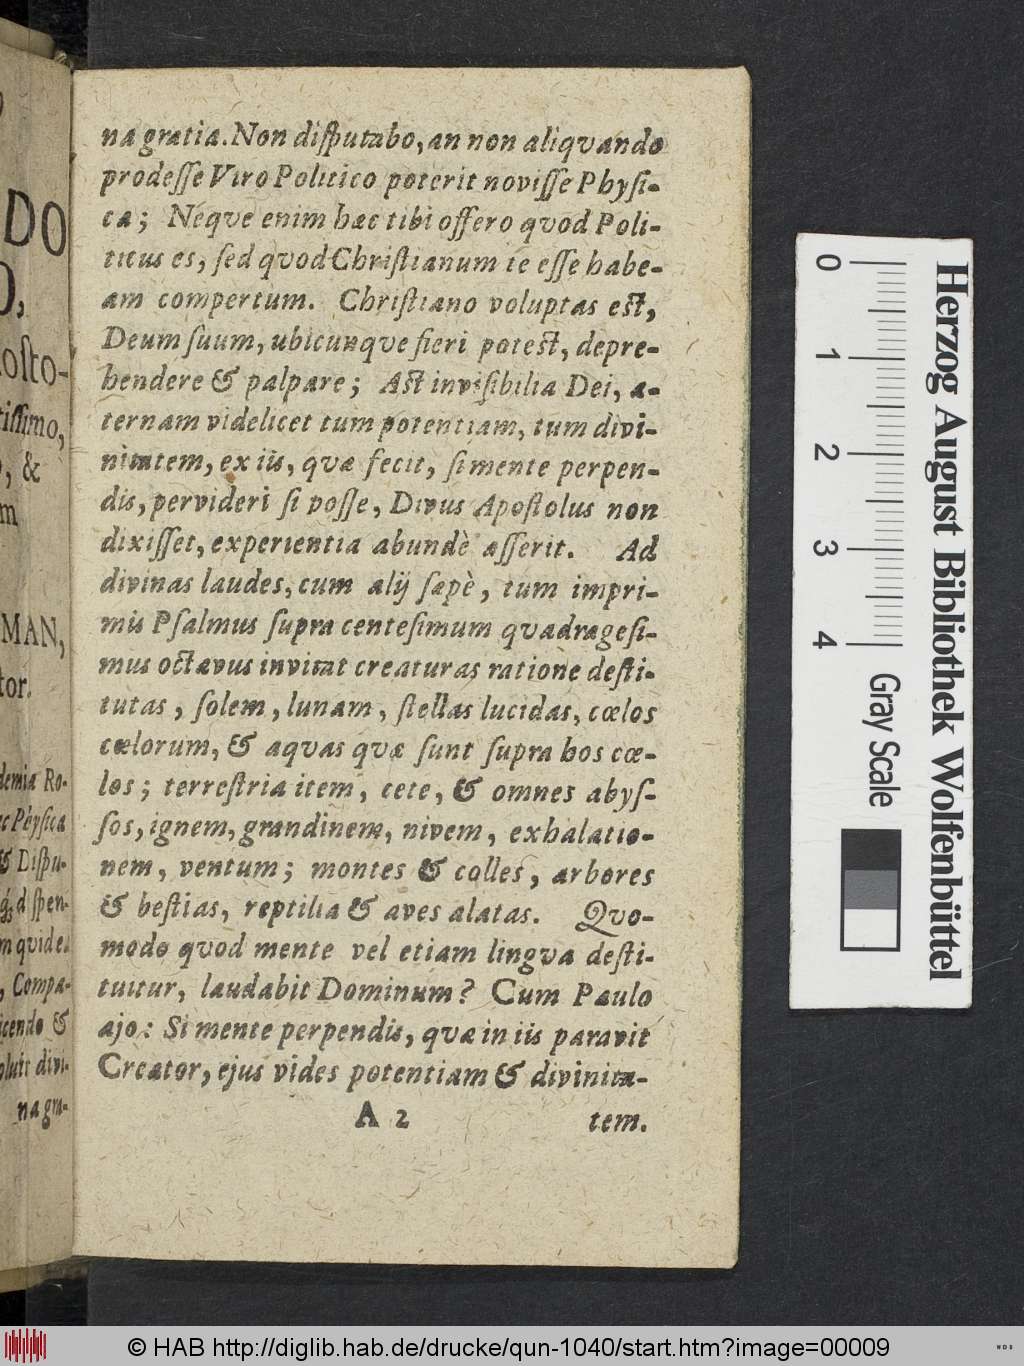 DO
O,
osto-
tissimo,
o, &
m
MAN,
tor.
demia Ro-
ac Physica
& Dispu-
d spen-
m quidea
, Compa-
icendo &
oluit divi-
na gra-
na gratia. Non disputabo, an non aliqvando
prodesse Viro Politico poterit novisse Physi-
ca; Neqve enim hæc tibi offero qvod Poli-
ticus es, sed qvod Christianum te esse habe-
am compertum. Christiano voluptas est,
Deum suum, ubicunqve fieri potest, depre-
hendere & palpare; Ast invisibilia Dei, æ-
ternam videlicet tum potentiam, tum divi-
nitatem, ex iis, qvæ fecit, si mente perpen-
dis, pervideri si posse, Divus Apostolus non
dixisset, experientia abundè asserit. Ad
divinas laudes, cum alij sæpè, tum impri-
mis Psalmus supra centesimum qvadragesi-
mus octavus invitat creaturas ratione desti-
tutas, solem, lunam, stellas lucidas, cœlos
cœlorum, & aqvas qvæ sunt supra hos cœ-
los; terrestria item, cete, & omnes abys-
sos, ignem, grandinem, nivem, exhalatio-
nem, ventum; montes & colles, arbores
& bestias, reptilia & aves alatas. Qvo-
modo qvod mente vel etiam lingva desti-
tuitur, laudabit Dominum? Cum Paulo
ajo: Si mente perpendis, qvæ in iis paravit
Creator, ejus vides potentiam & divinita-
A 2 tem.
0 1 2 3 4
Gray Scale
Herzog August Bibliothek Wolfenbüttel
© HAB http://diglib.hab.de/drucke/qun-1040/start.htm?image=00009
WDB